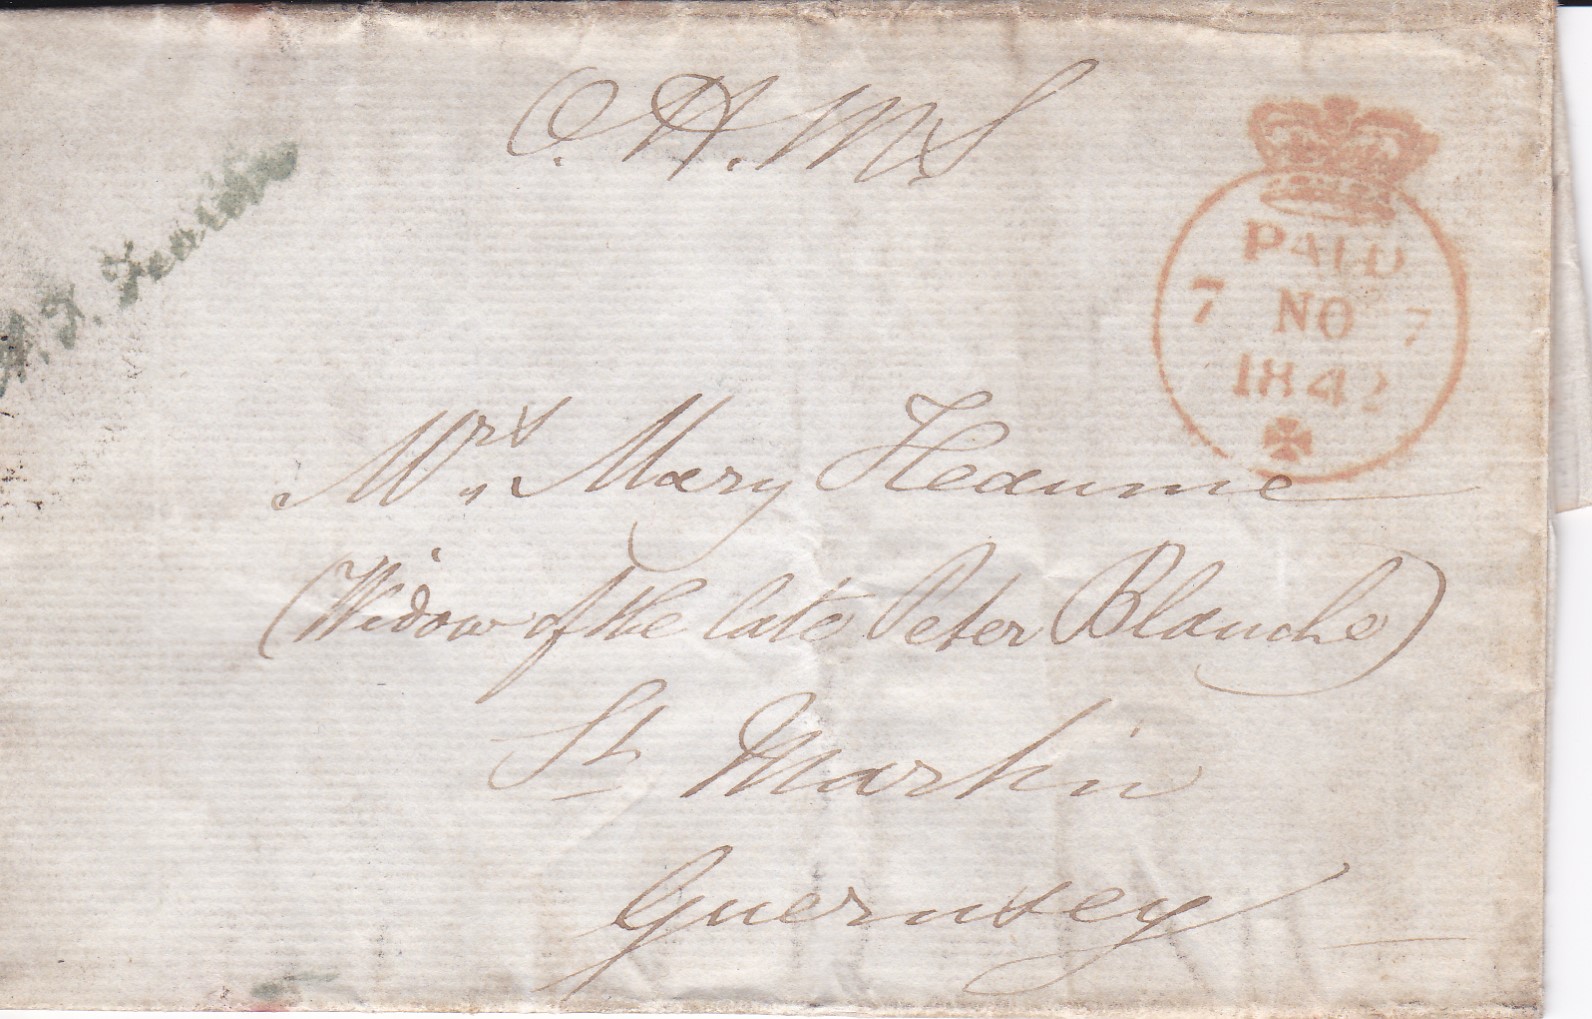 O.H.M.S
PAID
7 NO 7
1842
Mrs Mary Heaume
(Widow of the late Peter Blanche)
St Martin
Guernsey